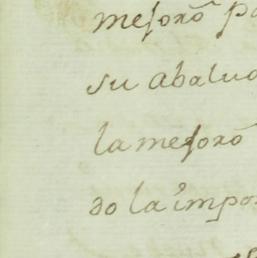 mejorô pa
su abalua
la mejorô
do la impor